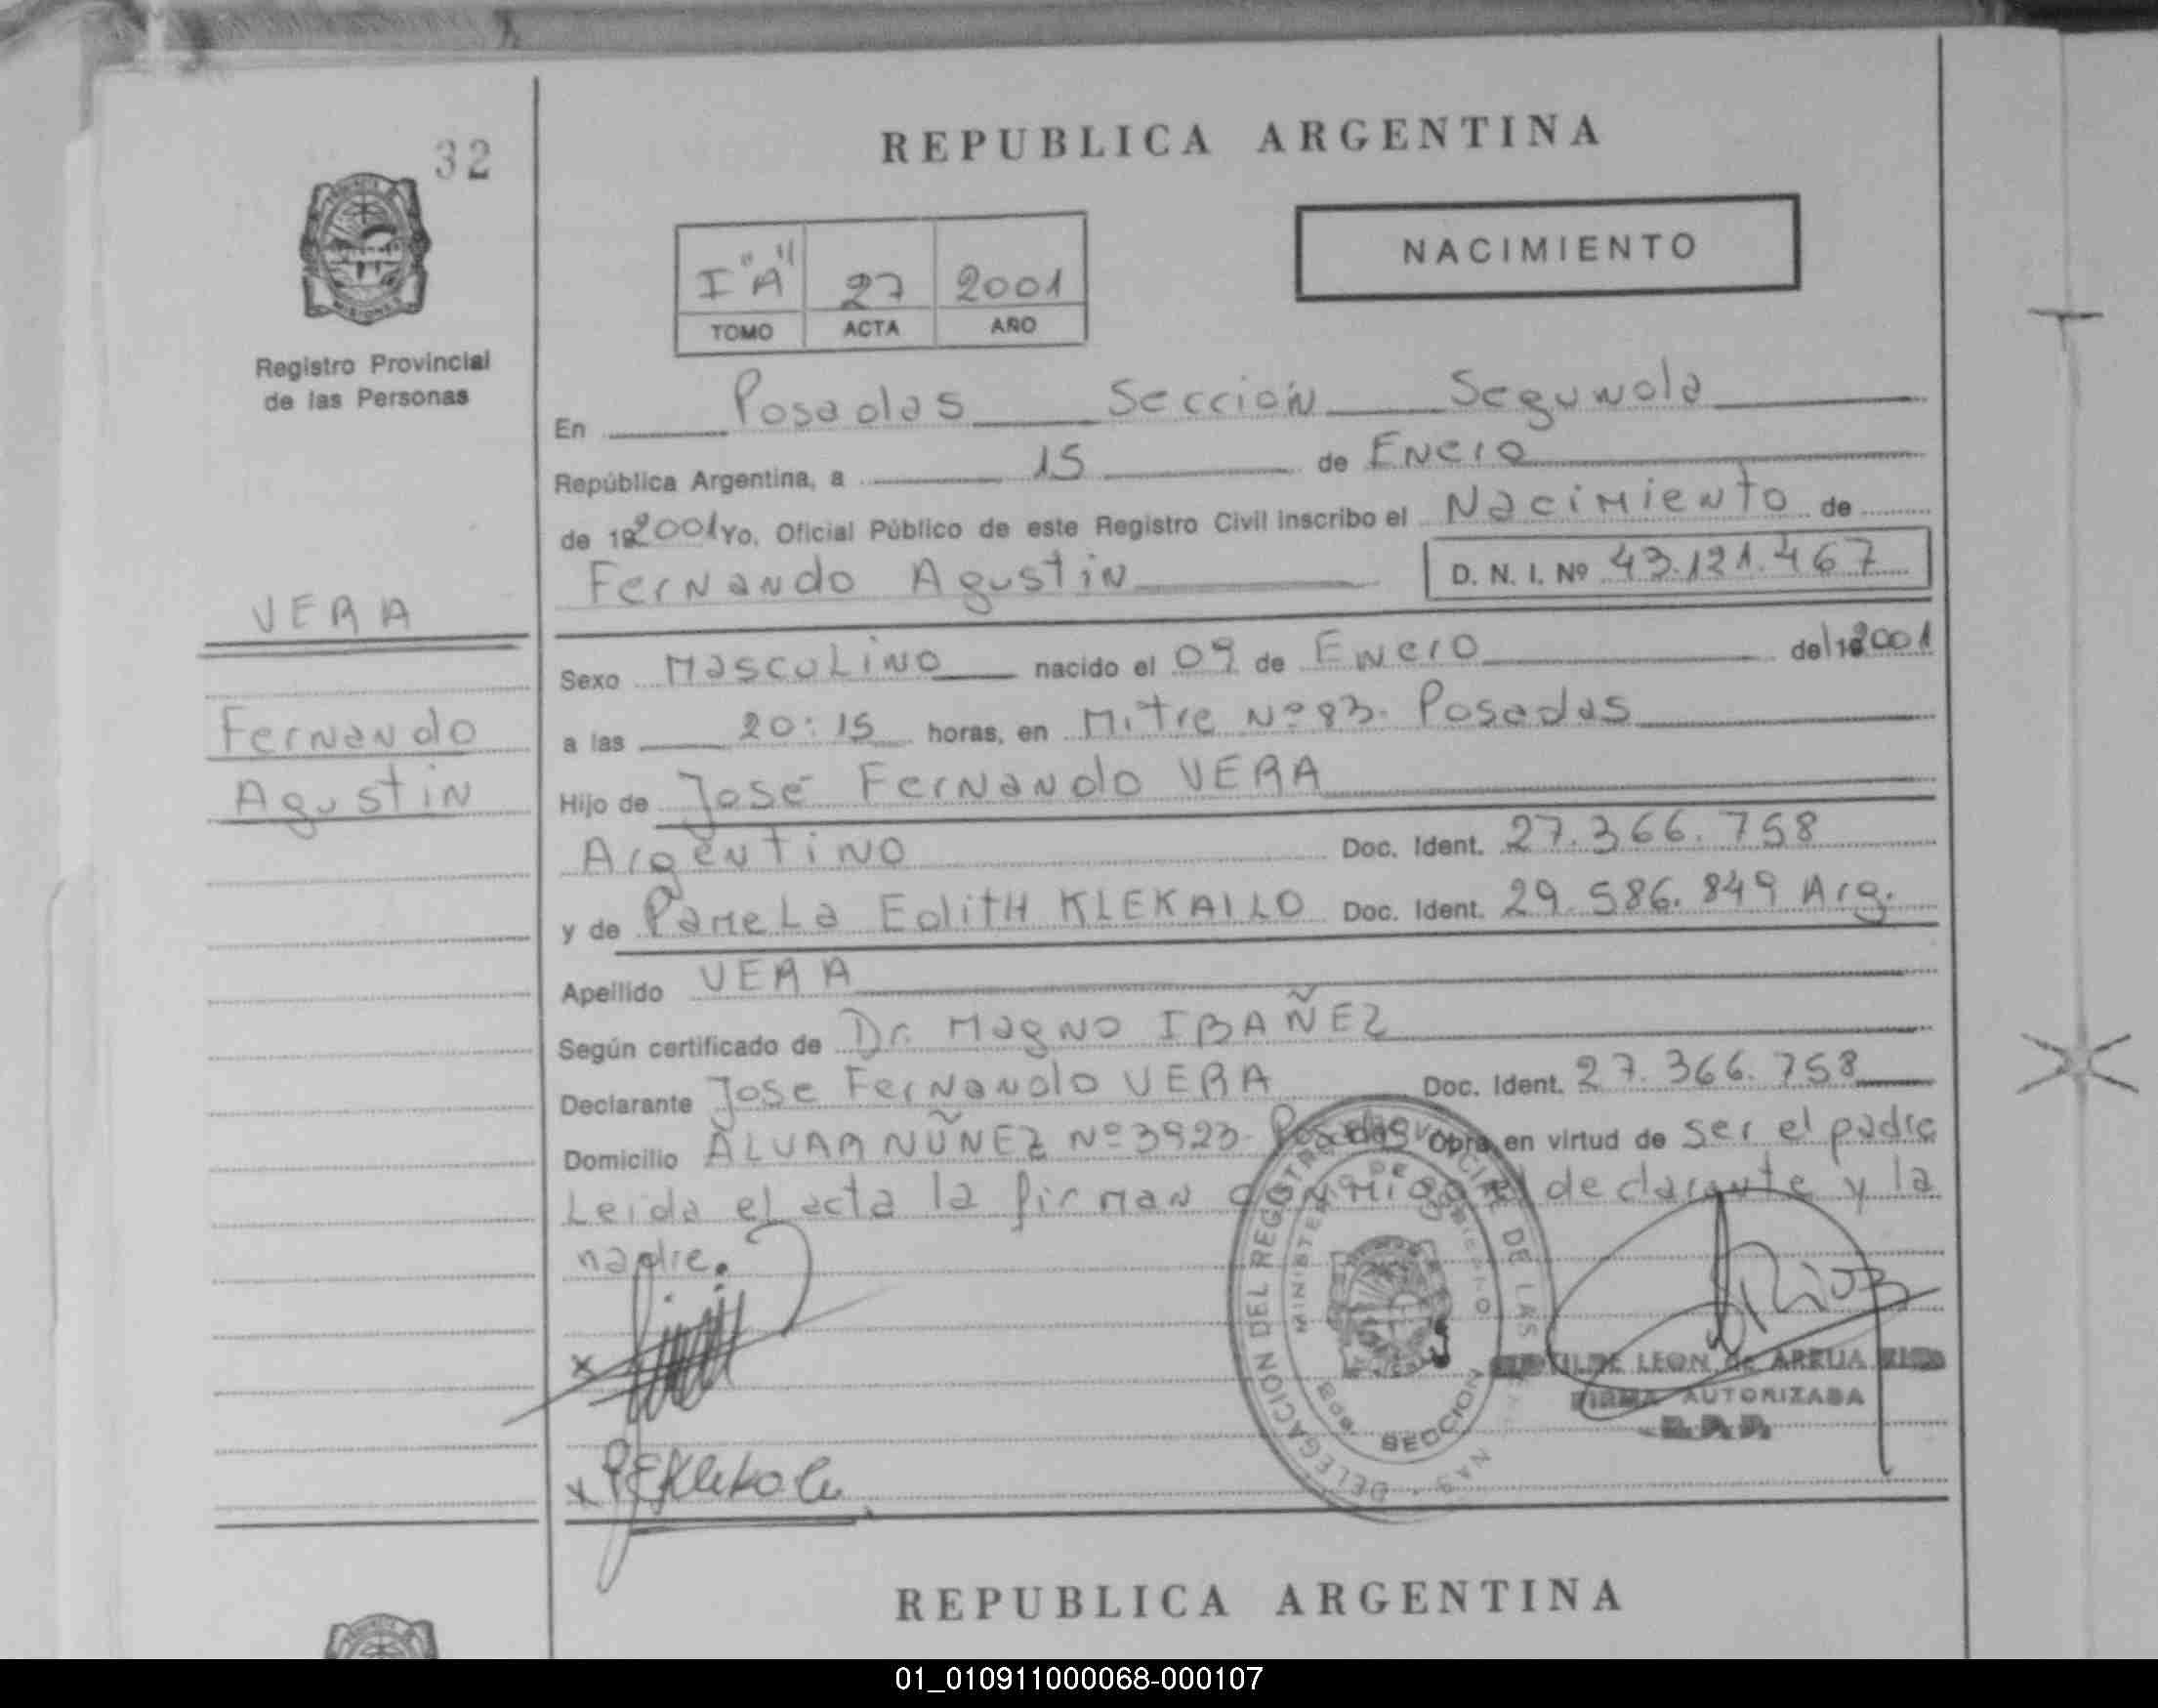 32
REPUBLICA ARGENTINA
NACIMIENTO
I "A" 27 2001
TOMO ACTA AÑO
Registro Provincial
de las Personas
En Posadas Sección Segunda
República Argentina, a 15 de Enero
de 192001 Yo, Oficial Público de este Registro Civil inscribo el Nacimiento de
Fernando Agustin D. N. I. Nº 43.121.467
VERA
Fernando
Agustin
Sexo Masculino nacido el 09 de Enero del 192001
a las 20:15 horas, en Mitre Nº 83. Posadas
Hijo de José Fernando VERA
Argentino Doc. Ident. 27.366.758
y de Pamela Edith KLEKAILO Doc. Ident. 29.586.849 Arg.
Apellido VERA
Según certificado de Dr. Magno IBAÑEZ
Declarante Jose Fernando VERA Doc. Ident. 27.366.758
Domicilio ALVAR NUÑEZ Nº 3923. Posadas Obra en virtud de ser el padre
Leida el acta la firman conmigo el declarante y la
madre.
DELEGACION DEL REGISTRO PROVINCIAL DE LAS
MINISTERIO DE GOBIERNO
SECCION 2da
LEON de ARRUA
FIRMA AUTORIZADA
R.P.P.
REPUBLICA ARGENTINA
01_010911000068-000107